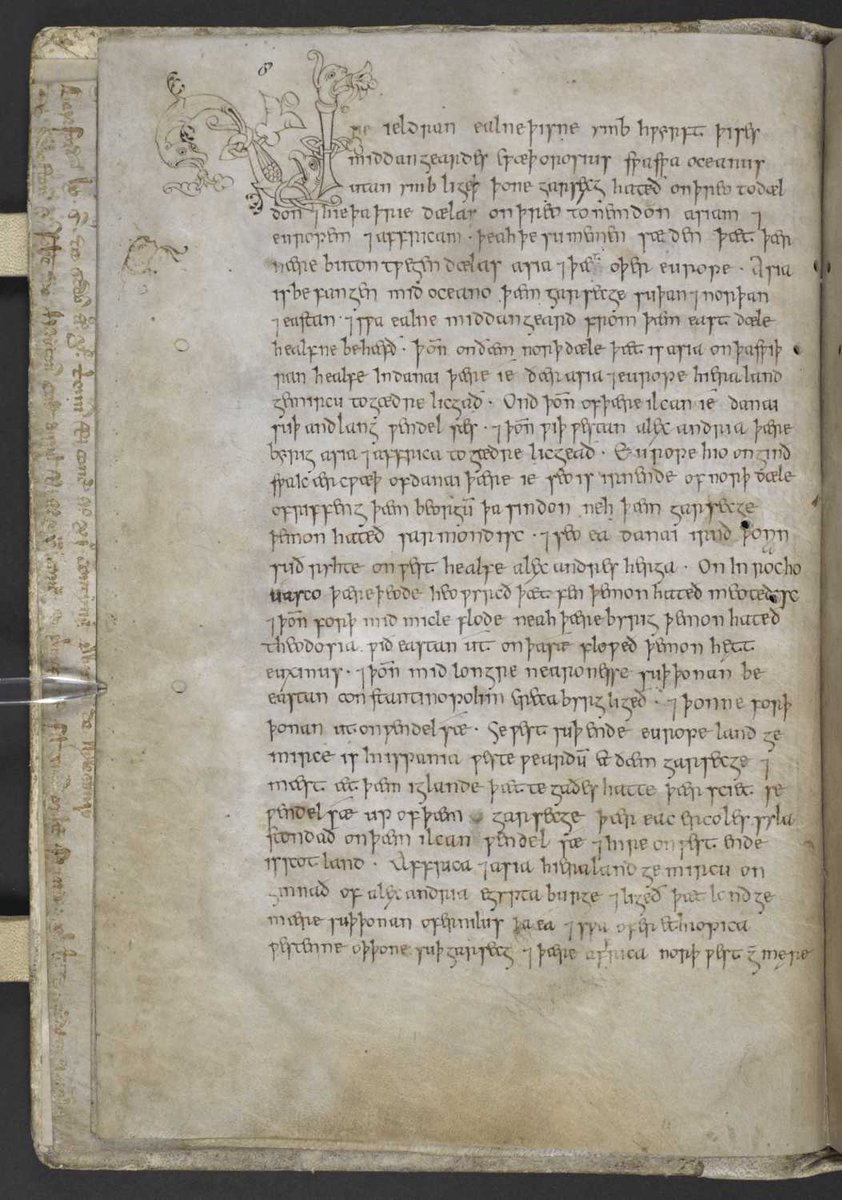 8
re ieldran ealne þisne ymb hƿyrft þises
middangeardes cƿæþ orosius sƿa sƿa oceanus
utan ymb ligeþ þone garsecg hateð on þreo todæl
don ⁊ hie þa þrie dælas on þreo tonemdon asiam ⁊
europem ⁊ affricam · þeah þe sume men sæden þæt þær
nære buton tƿegen dælas asia ⁊ þæt oþer europe · Asia
is befangen mid oceano þæm garsecge suþan ⁊ norþan
⁊ eastan · ⁊ sƿa ealne middangeard from þæm east dæle
healfne behæfð · þoñ on ðæm norþ dæle þæt is asia on þa sƿiþ
ran healfe In danai þære ie ðær asia ⁊ europe hiera land
gemircu togædre licgað · Ond þoñ of þære ilcan ie danai
suþ andlang ƿendel sæs · ⁊ þoñ ƿiþ ƿestan alexandria þære
byrig asia ⁊ affrica togædre licgead · Europe hio ongind
sƿa Ic ær cƿæþ of danai þære ie seo is irnende of norþ dæle
of riffeng þæm beorgū þa sindon neh þæm garsecge
þemon hateð sarmondisc · ⁊ seo ea danai irnð þonn
suð ryhte on ƿest healfe alexandres herga · On In rocho
uasco þære þeode heo ƿyrcð þæt fen þemon hateð meotedisc
⁊ þoñ forþ mid micle flode neah þære byrig þemon hateð
theodosia ƿið eastan ut on þa sæ floƿeð þemon hætt
euxinus · ⁊ þoñ mid longre nearonesse suþ þonan be
eastan constantinopolim creca byrg ligeð · ⁊ þonne forþ
þonan ut on ƿendel sæ · Se ƿest suþ ende europe land ge
mirce is In ispania ƿeste ƿeardū et ðæm garsecge ⁊
mæst æt þæm iglande þætte gades hatte þær sciet se
ƿendel sæ up of þæm garsecge þær eac ercoles syla
stondað on þæm ilcan ƿendel sæ ⁊ hire on ƿest ende
is scotland · Affrica ⁊ asia hiera land gemircu on
ginnað of alexandria egypta burge ⁊ ligeð þæt lond ge
mære suþ þonan ofer nilus þa ea ⁊ sƿa ofer ethiopica
ƿestenne oþ þone suþ garsecg · ⁊ þære affrica norþ ƿest gemęre